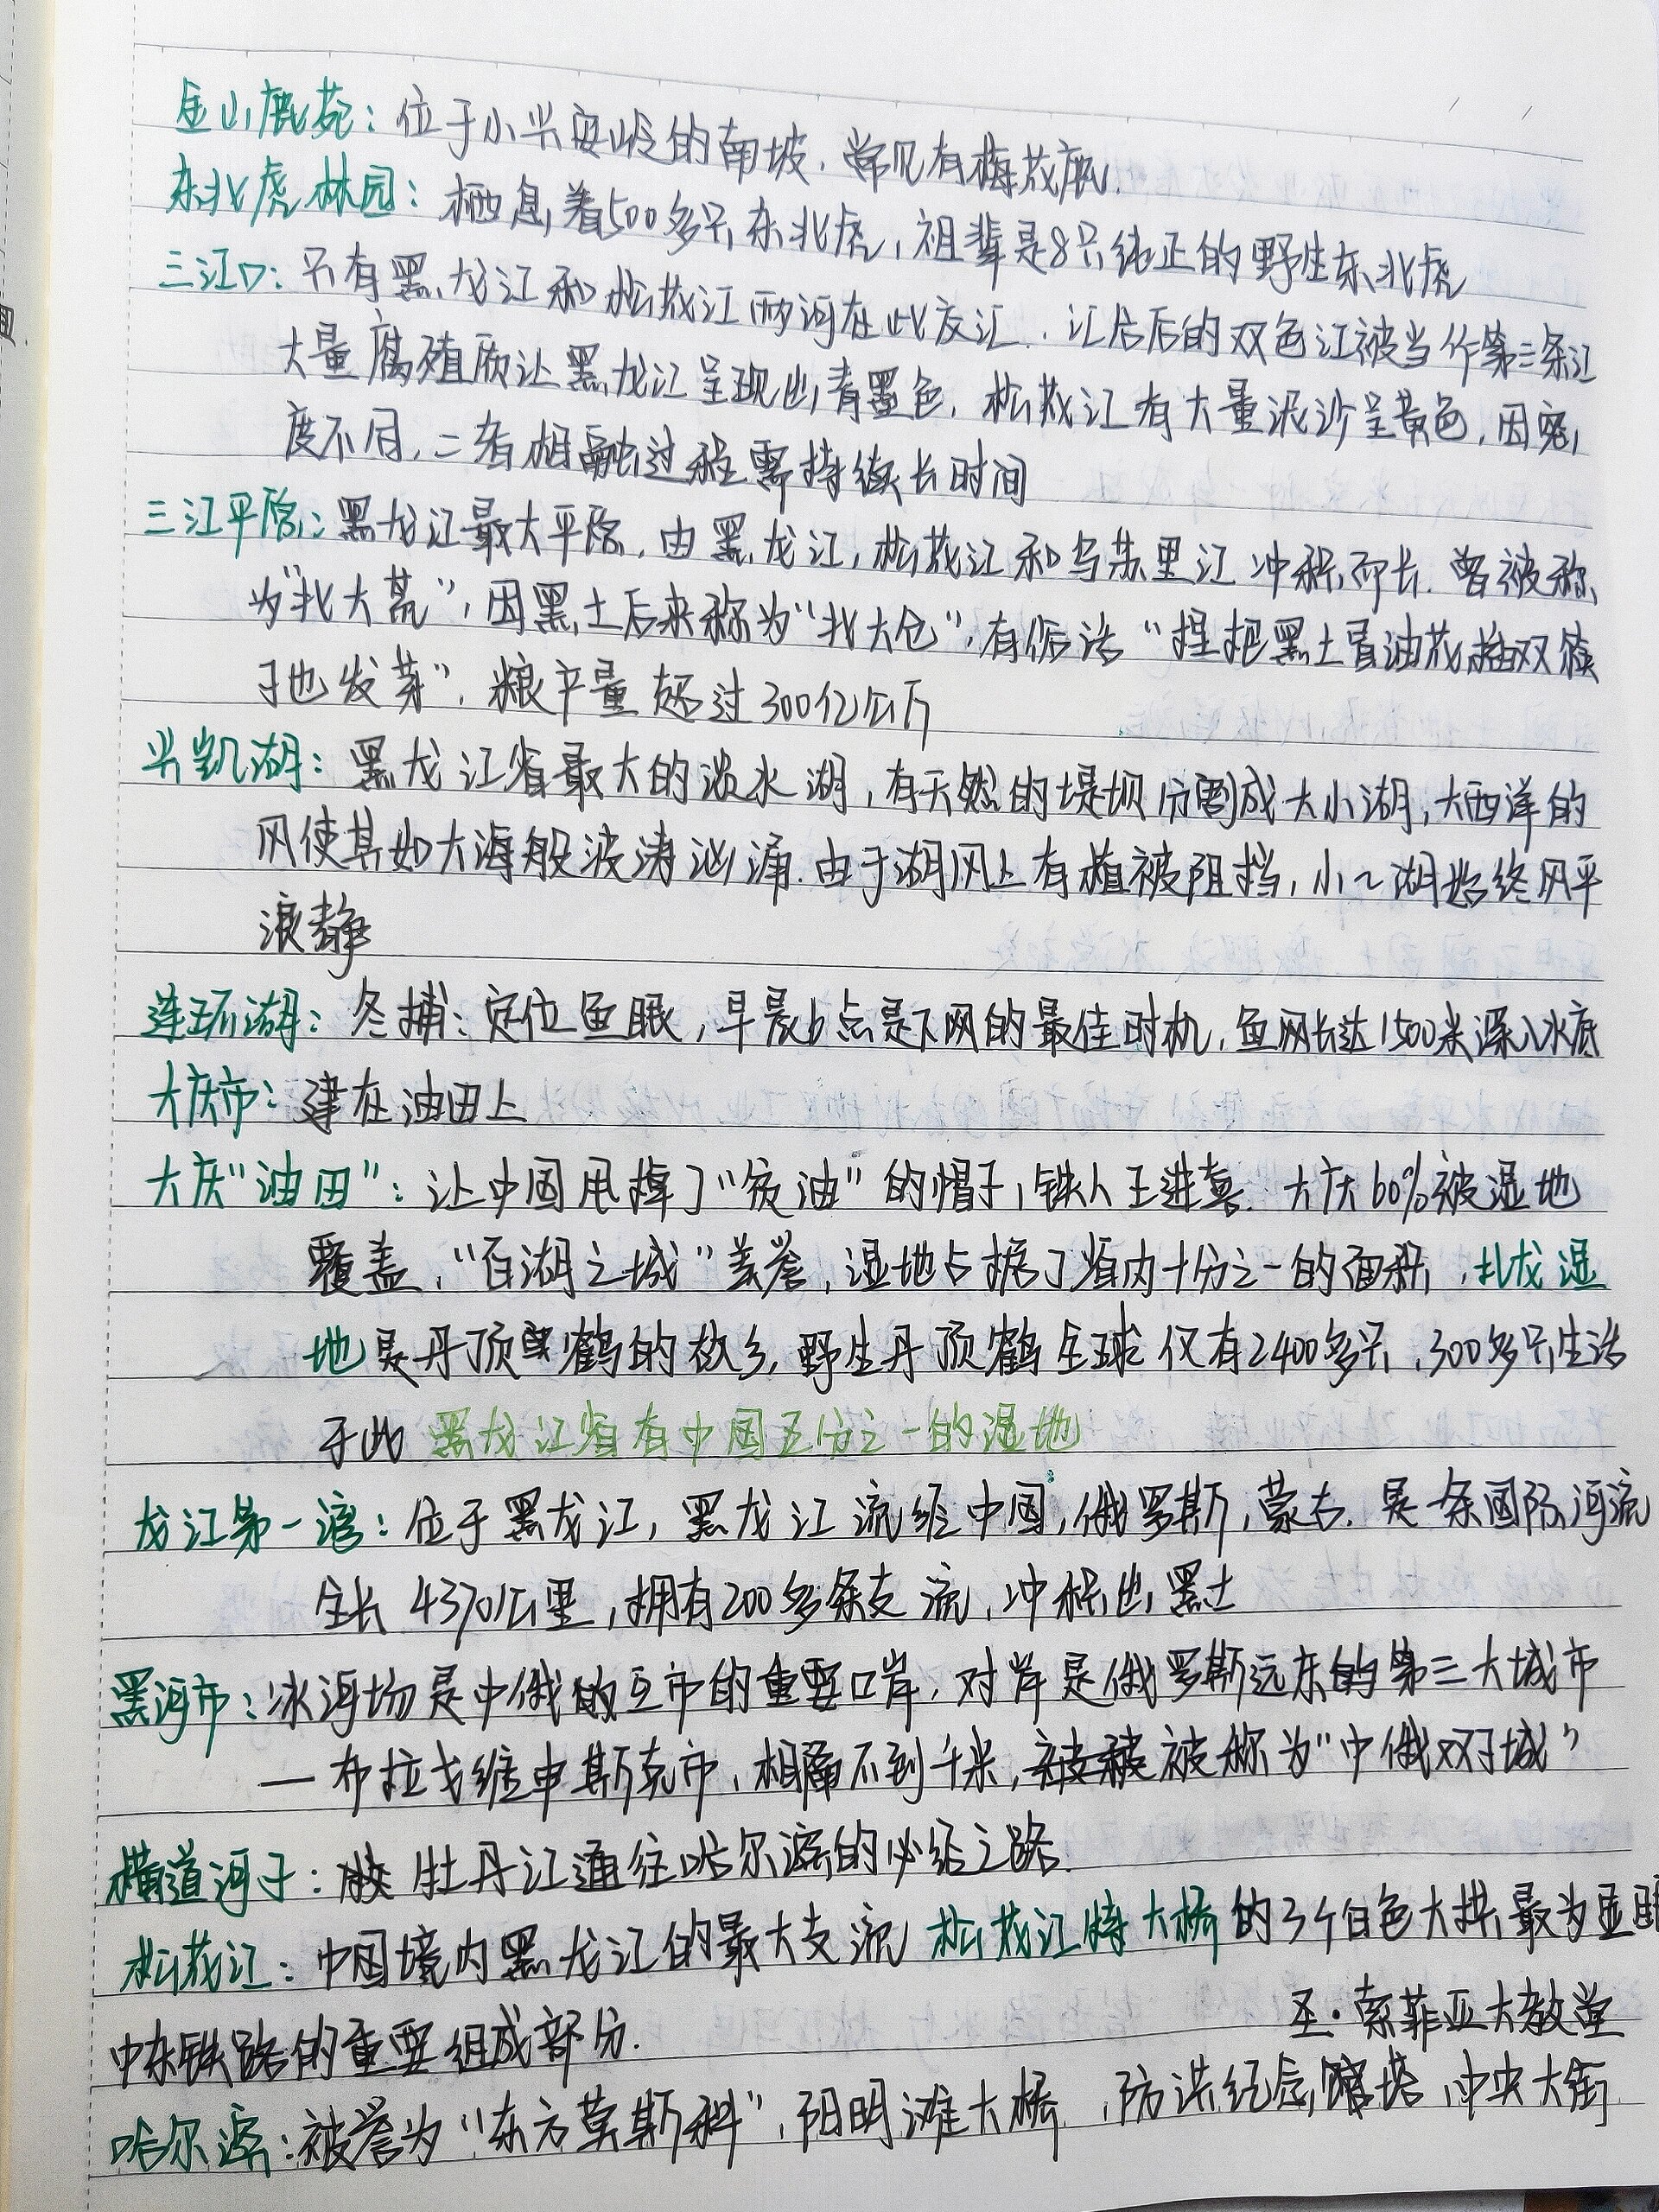 金山鹿苑：位于小兴安岭的南坡，常见有梅花鹿.
东北虎林园：栖息着500多只东北虎，祖辈是8只纯正的野生东北虎
三江口：只有黑龙江和松花江两河在此交汇．汇合后的双色江被当作第三条江
大量腐殖质让黑龙江呈现出青墨色，松花江有大量泥沙呈黄色，因密
度不同，二者相融过程需持续长时间
三江平原：黑龙江最大平原，由黑龙江，松花江和乌苏里江冲积而长．曾被称
为“北大荒”，因黑土后来称为“北大仓”，有俗话“捏把黑土冒油花，插双筷
子也发芽”，粮产量超过300亿公斤
兴凯湖：黑龙江省最大的淡水湖，有天然的堤坝分割成大小湖，大西洋的
风使其如大海般波涛汹涌．由于湖风上有植被阻挡，小～湖始终风平
浪静
连环湖：冬捕：定位鱼眼，早晨6点是下网的最佳时机，鱼网长达1500米深入水底
大庆市：建在油田上
大庆“油田”：让中国甩掉了“贫油”的帽子，铁人王进喜．大庆60%被湿地
覆盖，“百湖之城”美誉，湿地占据了省内十分之一的面积，扎龙湿
地是丹顶鹤的故乡，野生丹顶鹤全球仅有2400多只，300多只生活
于此 黑龙江省有中国五分之一的湿地
龙江第一湾：位于黑龙江，黑龙江流经中国，俄罗斯，蒙古．是一条国际河流
全长4370公里，拥有200多条支流，冲积出黑土
黑河市：冰河场是中俄的互市的重要口岸，对岸是俄罗斯远东的第三大城市
—布拉戈维申斯克市，相隔不到千米，被称为“中俄双子城”
横道河子：牡丹江通往哈尔滨的必经之路.
松花江：中国境内黑龙江的最大支流 松花江特大桥的3个白色大拱最为显眼
中东铁路的重要组成部分.
圣·索菲亚大教堂
哈尔滨：被誉为“东方莫斯科”，阳明滩大桥，防洪纪念塔，中央大街